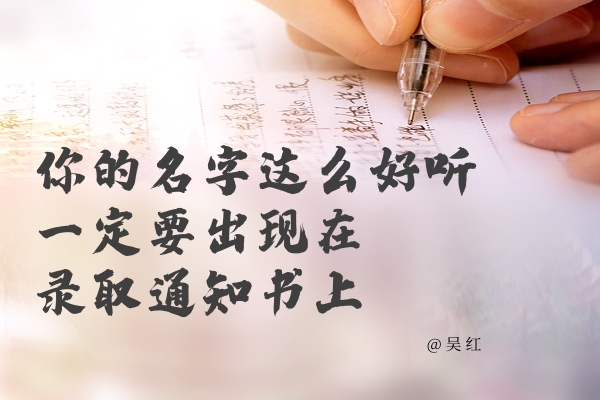 你的名字这么好听
一定要出现在
录取通知书上
@吴红